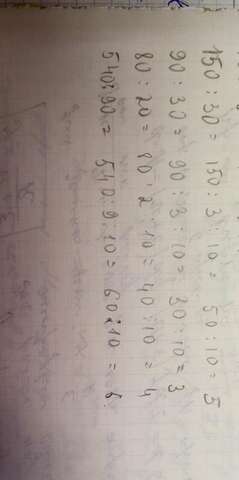 150 : 30 = 150 : 3 : 10 = 50 : 10 = 5
90 : 30 = 90 : 3 : 10 = 30 : 10 = 3
80 : 20 = 80 : 2 : 10 = 40 : 10 = 4
540 : 90 = 540 : 9 : 10 = 60 : 10 = 6